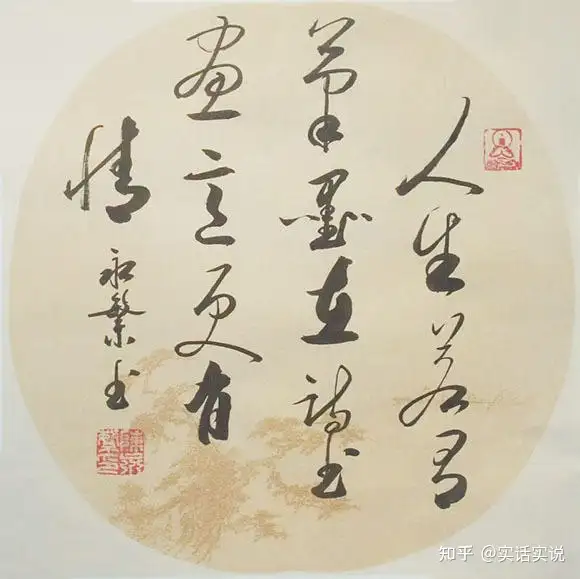 人生若有
笔墨在诗书
画意更有
情
永繁书
知乎 @实话实说